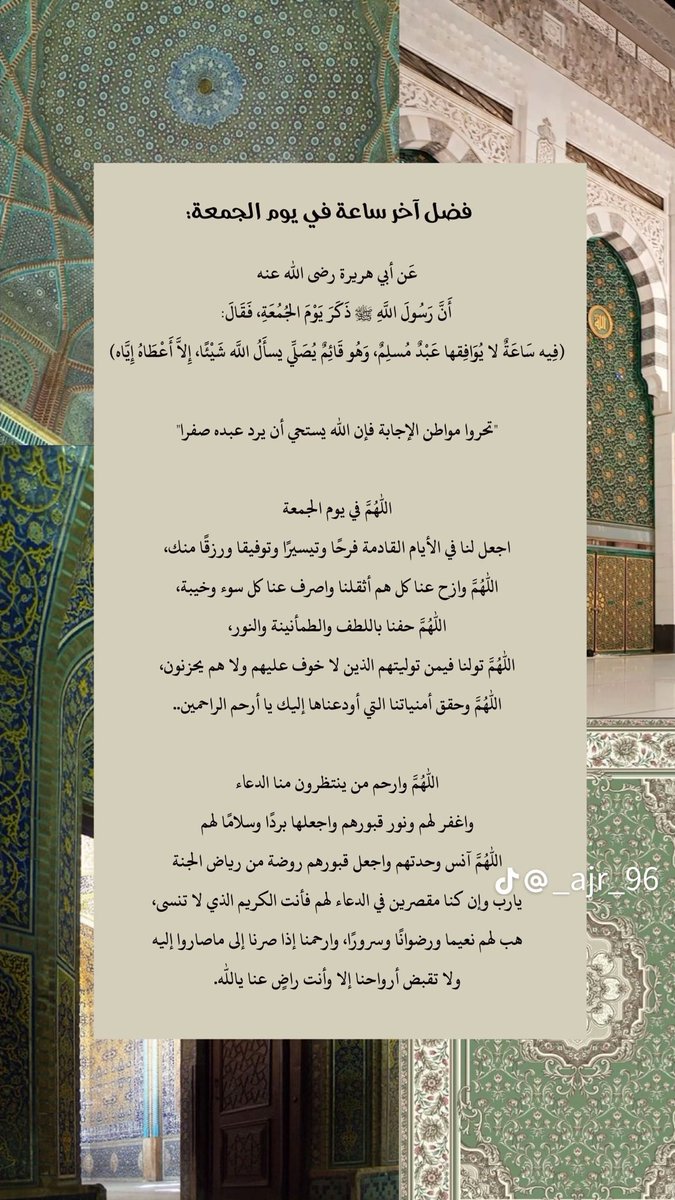 فضل آخر ساعة في يوم الجمعة:
عَن أبي هريرة رضى الله عنه
أَنَّ رَسُولَ اللَّهِ ﷺ ذَكَرَ يَوْمَ الجُمُعَةِ، فَقَالَ:
(فِيه سَاعَةٌ لا يُوَافِقها عَبْدٌ مُسلِمٌ، وَهُو قَائِمٌ يُصَلِّي يسأَلُ اللَّه شَيْئًا، إِلاَّ أَعْطَاهُ إِيَّاه)
"تحروا مواطن الإجابة فإن الله يستحي أن يرد عبده صفرا"
اللَّهُمَّ في يوم الجمعة
اجعل لنا في الأيام القادمة فرحًا وتيسيرًا وتوفيقا ورزقًا منك،
اللَّهُمَّ وازح عنا كل هم أثقلنا واصرف عنا كل سوء وخيبة،
اللَّهُمَّ حفنا باللطف والطمأنينة والنور،
اللَّهُمَّ تولنا فيمن توليتهم الذين لا خوف عليهم ولا هم يحزنون،
اللَّهُمَّ وحقق أمنياتنا التي أودعناها إليك يا أرحم الراحمين..
اللَّهُمَّ وارحم من ينتظرون منا الدعاء
واغفر لهم ونور قبورهم واجعلها بردًا وسلامًا لهم
اللَّهُمَّ آنس وحدتهم واجعل قبورهم روضة من رياض الجنة
@_ajr_96
يارب وإن كنا مقصرين في الدعاء لهم فأنت الكريم الذي لا تنسى،
هب لهم نعيما ورضوانًا وسرورًا، وارحمنا إذا صرنا إلى ماصاروا إليه
ولا تقبض أرواحنا إلا وأنت راضٍ عنا يالله.